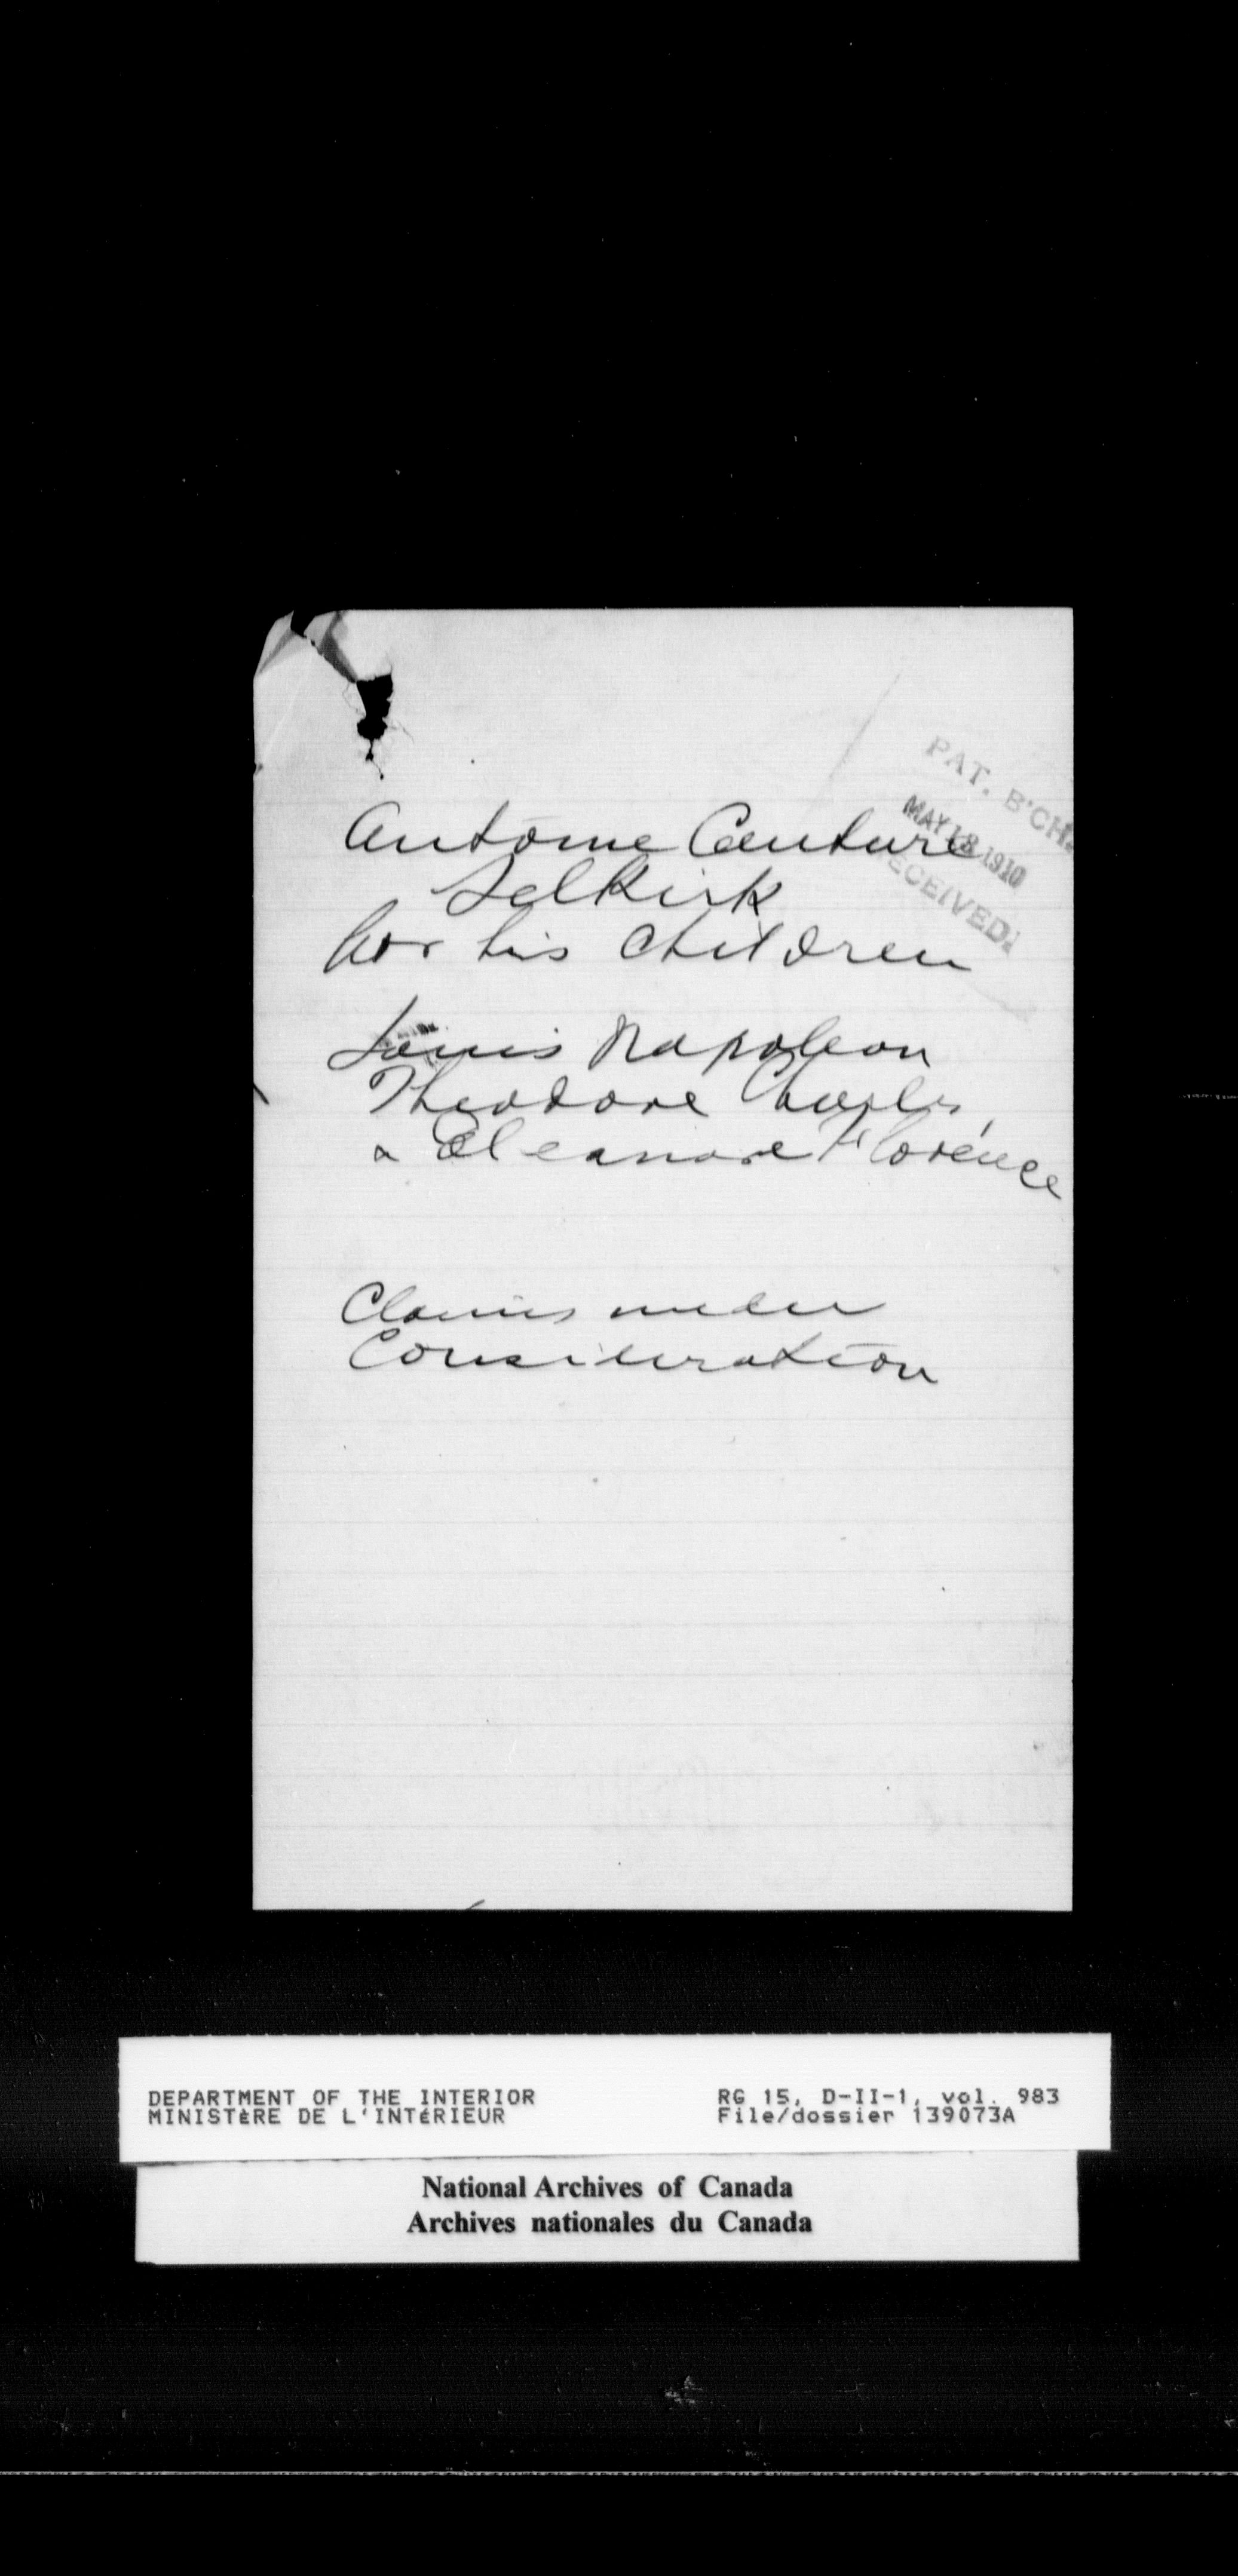 PAT. B'CH.
MAY 18 1910
RECEIVED
Antoine Couture
Selkirk
for his children
Louis Napoleon
Theodore Charles,
& Eleanore Florence
Claims under
Consideration
DEPARTMENT OF THE INTERIOR
MINISTÈRE DE L'INTÉRIEUR
RG 15, D-II-1, vol. 983
File/dossier 139073A
National Archives of Canada
Archives nationales du Canada